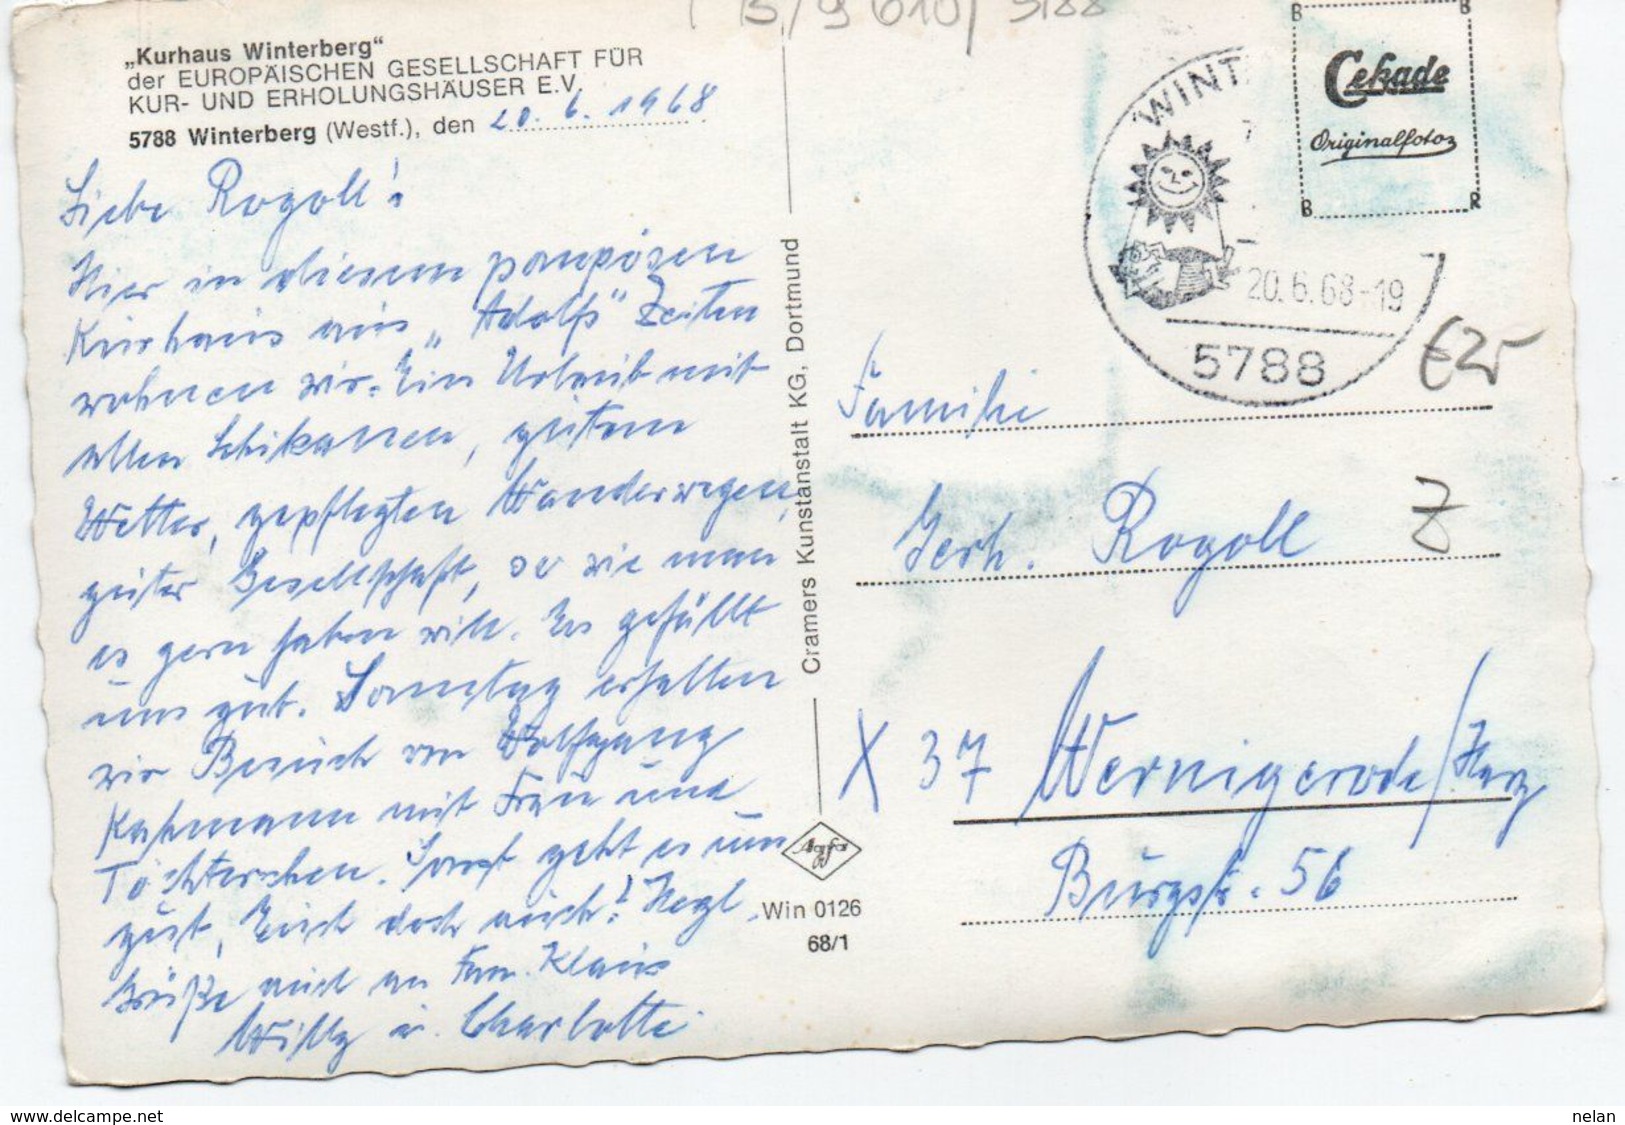 „Kurhaus Winterberg“
der EUROPÄISCHEN GESELLSCHAFT FÜR
KUR- UND ERHOLUNGSHÄUSER E.V.
5788 Winterberg (Westf.), den 20. 6. 1968
Liebe Rogoll's!
Hier in diesem pompösen
Kurhaus aus „Adolfs“ Zeiten
wohnen wir. Ein Urlaub mit
allen Schikanen, gutem
Wetter, gepflegten Wanderwegen,
guter Gesellschaft, so wie man
es gern haben will. Es gefällt
uns gut. Sonntag erhalten
wir Besuch von Wolfgang
Kahmann mit Frau und
Töchterchen. Sonst geht es uns
gut, Euch doch auch? Hrzl.
Grüße auch an Fam. Klaus
Willy u. Charlotte
Cramers Kunstanstalt KG, Dortmund
Agfa
Win 0126
68/1
WINT
20.6.68-19
5788
Cekade
Originalfoto
B
R
B
R
€25
Z
Familie
Gerh. Rogoll
X 37 Wernigerode/Harz
Burgstr. 56
www.delcampe.net
nelan